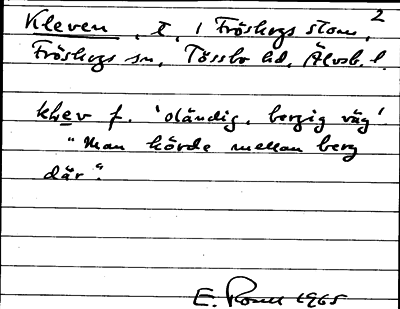 2
Kleven, t, i Fröskogs stom,
Fröskogs sn, Tössbo hd, Älvsb. l.
klev f. 'oländig, bergig väg'
"Man körde mellan berg
där".
E. 1965